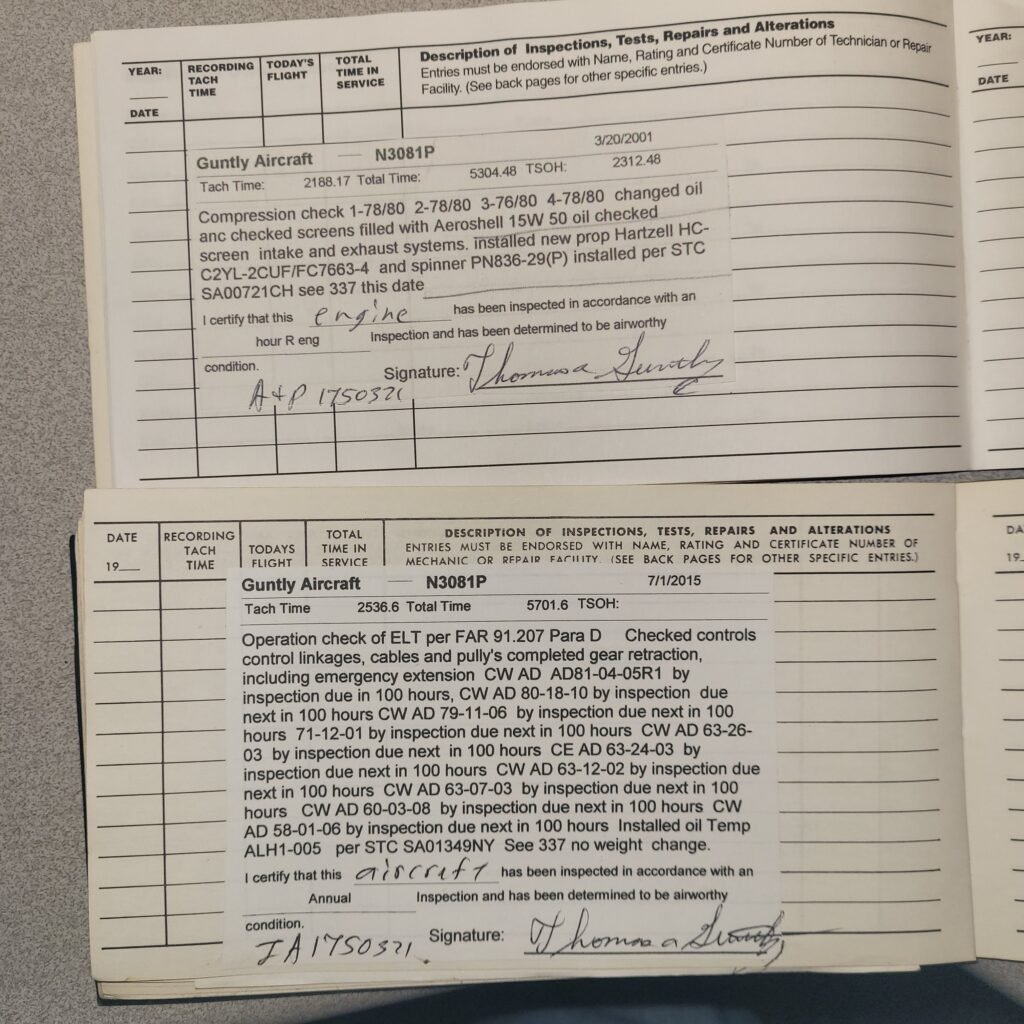 YEAR:
DATE
RECORDING TACH TIME
TODAY'S FLIGHT
TOTAL TIME IN SERVICE
Description of Inspections, Tests, Repairs and Alterations
Entries must be endorsed with Name, Rating and Certificate Number of Technician or Repair
Facility. (See back pages for other specific entries.)
YEAR:
DATE
Guntly Aircraft N3081P 3/20/2001
Tach Time: 2188.17 Total Time: 5304.48 TSOH: 2312.48
Compression check 1-78/80 2-78/80 3-76/80 4-78/80 changed oil
anc checked screens filled with Aeroshell 15W 50 oil checked
screen intake and exhaust systems. installed new prop Hartzell HC-
C2YL-2CUF/FC7663-4 and spinner PN836-29(P) installed per STC
SA00721CH see 337 this date
I certify that this engine has been inspected in accordance with an
hour R eng Inspection and has been determined to be airworthy
condition. Signature: Thomas a Guntly
A+P 1750321
DATE
19
RECORDING TACH TIME
TODAYS FLIGHT
TOTAL TIME IN SERVICE
DESCRIPTION OF INSPECTIONS, TESTS, REPAIRS AND ALTERATIONS
ENTRIES MUST BE ENDORSED WITH NAME, RATING AND CERTIFICATE NUMBER OF
MECHANIC OR REPAIR FACILITY. (SEE BACK PAGES FOR OTHER SPECIFIC ENTRIES.)
DA
19
Guntly Aircraft N3081P 7/1/2015
Tach Time 2536.6 Total Time 5701.6 TSOH:
Operation check of ELT per FAR 91.207 Para D Checked controls
control linkages, cables and pully's completed gear retraction,
including emergency extension CW AD AD81-04-05R1 by
inspection due in 100 hours, CW AD 80-18-10 by inspection due
next in 100 hours CW AD 79-11-06 by inspection due next in 100
hours 71-12-01 by inspection due next in 100 hours CW AD 63-26-
03 by inspection due next in 100 hours CE AD 63-24-03 by
inspection due next in 100 hours CW AD 63-12-02 by inspection due
next in 100 hours CW AD 63-07-03 by inspection due next in 100
hours CW AD 60-03-08 by inspection due next in 100 hours CW
AD 58-01-06 by inspection due next in 100 hours Installed oil Temp
ALH1-005 per STC SA01349NY See 337 no weight change.
I certify that this aircraft has been inspected in accordance with an
Annual Inspection and has been determined to be airworthy
condition. Signature: Thomas a Guntly
IA1750321